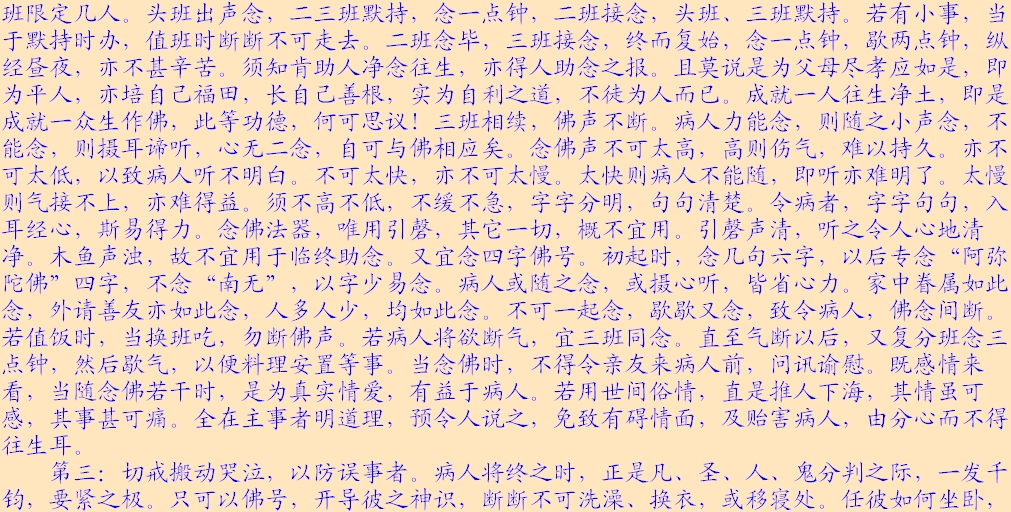 班限定几人。头班出声念，二三班默持，念一点钟，二班接念，头班、三班默持。若有小事，当
于默持时办，值班时断断不可走去。二班念毕，三班接念，终而复始，念一点钟，歇两点钟，纵
经昼夜，亦不甚辛苦。须知肯助人净念往生，亦得人助念之报。且莫说是为父母尽孝应如是，即
为平人，亦培自己福田，长自己善根，实为自利之道，不徒为人而已。成就一人往生净土，即是
成就一众生作佛，此等功德，何可思议！三班相续，佛声不断。病人力能念，则随之小声念，不
能念，则摄耳谛听，心无二念，自可与佛相应矣。念佛声不可太高，高则伤气，难以持久。亦不
可太低，以致病人听不明白。不可太快，亦不可太慢。太快则病人不能随，即听亦难明了。太慢
则气接不上，亦难得益。须不高不低，不缓不急，字字分明，句句清楚。令病者，字字句句，入
耳经心，斯易得力。念佛法器，唯用引磬，其它一切，概不宜用。引磬声清，听之令人心地清
净。木鱼声浊，故不宜用于临终助念。又宜念四字佛号。初起时，念几句六字，以后专念“阿弥
陀佛”四字，不念“南无”，以字少易念。病人或随之念，或摄心听，皆省心力。家中眷属如此
念，外请善友亦如此念，人多人少，均如此念。不可一起念，歇歇又念，致令病人，佛念间断。
若值饭时，当换班吃，勿断佛声。若病人将欲断气，宜三班同念。直至气断以后，又复分班念三
点钟，然后歇气，以便料理安置等事。当念佛时，不得令亲友来病人前，问讯谕慰。既感情来
看，当随念佛若干时，是为真实情爱，有益于病人。若用世间俗情，直是推人下海，其情虽可
感，其事甚可痛。全在主事者明道理，预令人说之，免致有碍情面，及贻害病人，由分心而不得
往生耳。
第三：切戒搬动哭泣，以防误事者。病人将终之时，正是凡、圣、人、鬼分判之际，一发千
钧，要紧之极。只可以佛号，开导彼之神识，断断不可洗澡、换衣，或移寝处。任彼如何坐卧，